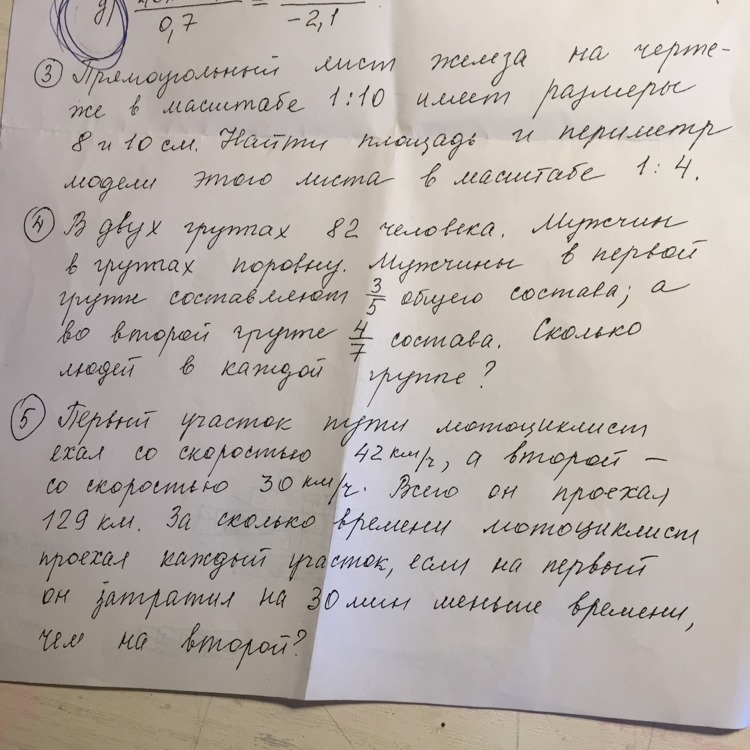 д) =
0,7 -2,1
③ Прямоугольный лист железа на черте-
же в масштабе 1:10 имеет размеры
8 и 10 см. Найти площадь и периметр
модели этого листа в масштабе 1:4.
④ В двух группах 82 человека. Мужчин
в группах поровну. Мужчины в первой
группе составляют 3/5 общего состава; а
во второй группе 4/7 состава. Сколько
людей в каждой группе?
⑤ Первый участок пути мотоциклист
ехал со скоростью 42 км/ч, а второй –
со скоростью 30 км/ч. Всего он проехал
129 км. За сколько времени мотоциклист
проехал каждый участок, если на первый
он затратил на 30 мин меньше времени,
чем на второй?